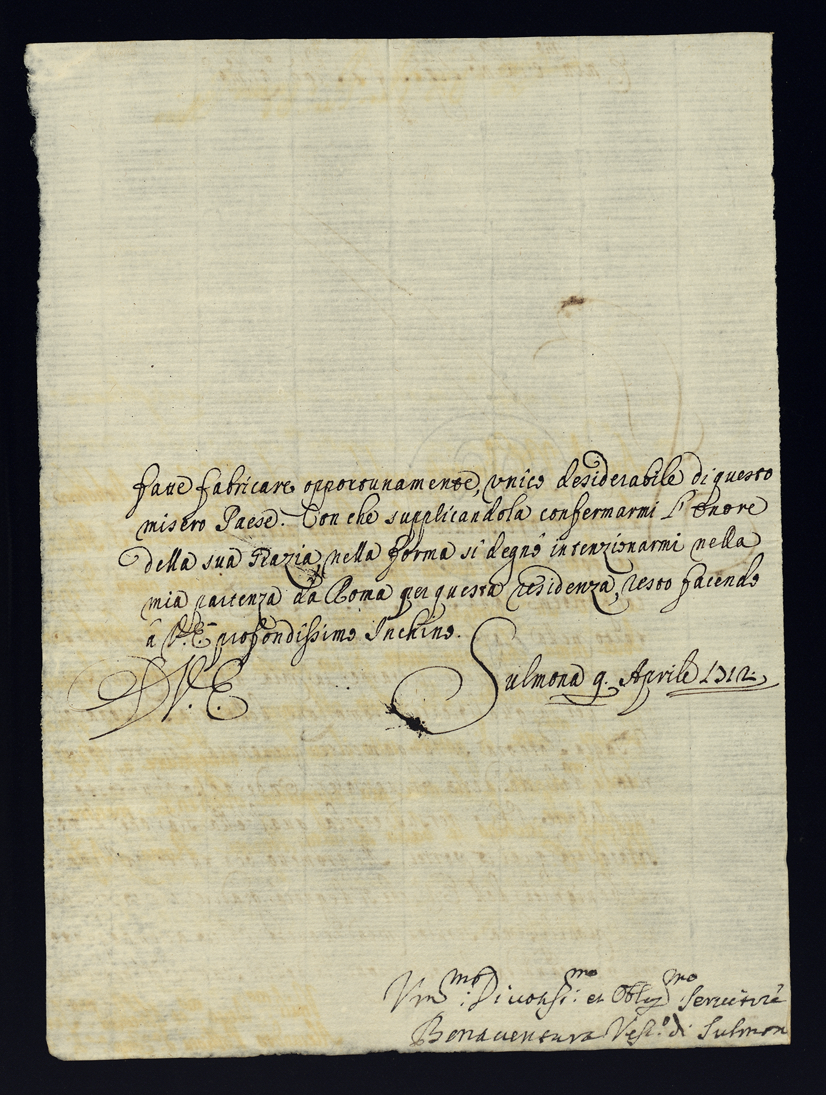 faue fabricare opportunamente, vnico desiderabile di questo
misero Paese. Con che supplicandola confermarmi l'onore
della sua Grazia, nella forma si degnò intenzionarmi nella
mia partenza da Roma per questa residenza, resto facendo
à V. E. profondissimo Inchino.
D V. E. Sulmona 9. Aprile 1712
Vm.mo Diuotis.mo et Oblig.mo Seruitore
Bonauentura Vesc.o di Sulmon